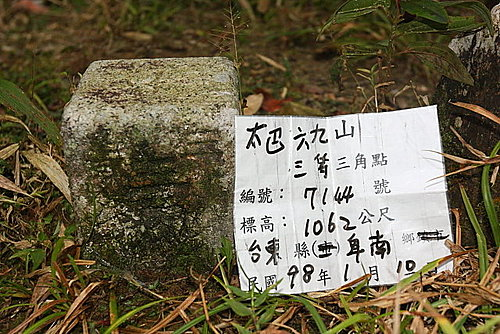 太巴六九山
三等三角點
編號：7144號
標高：1062公尺
台東縣（市）卑南鄉
民國98年1月10